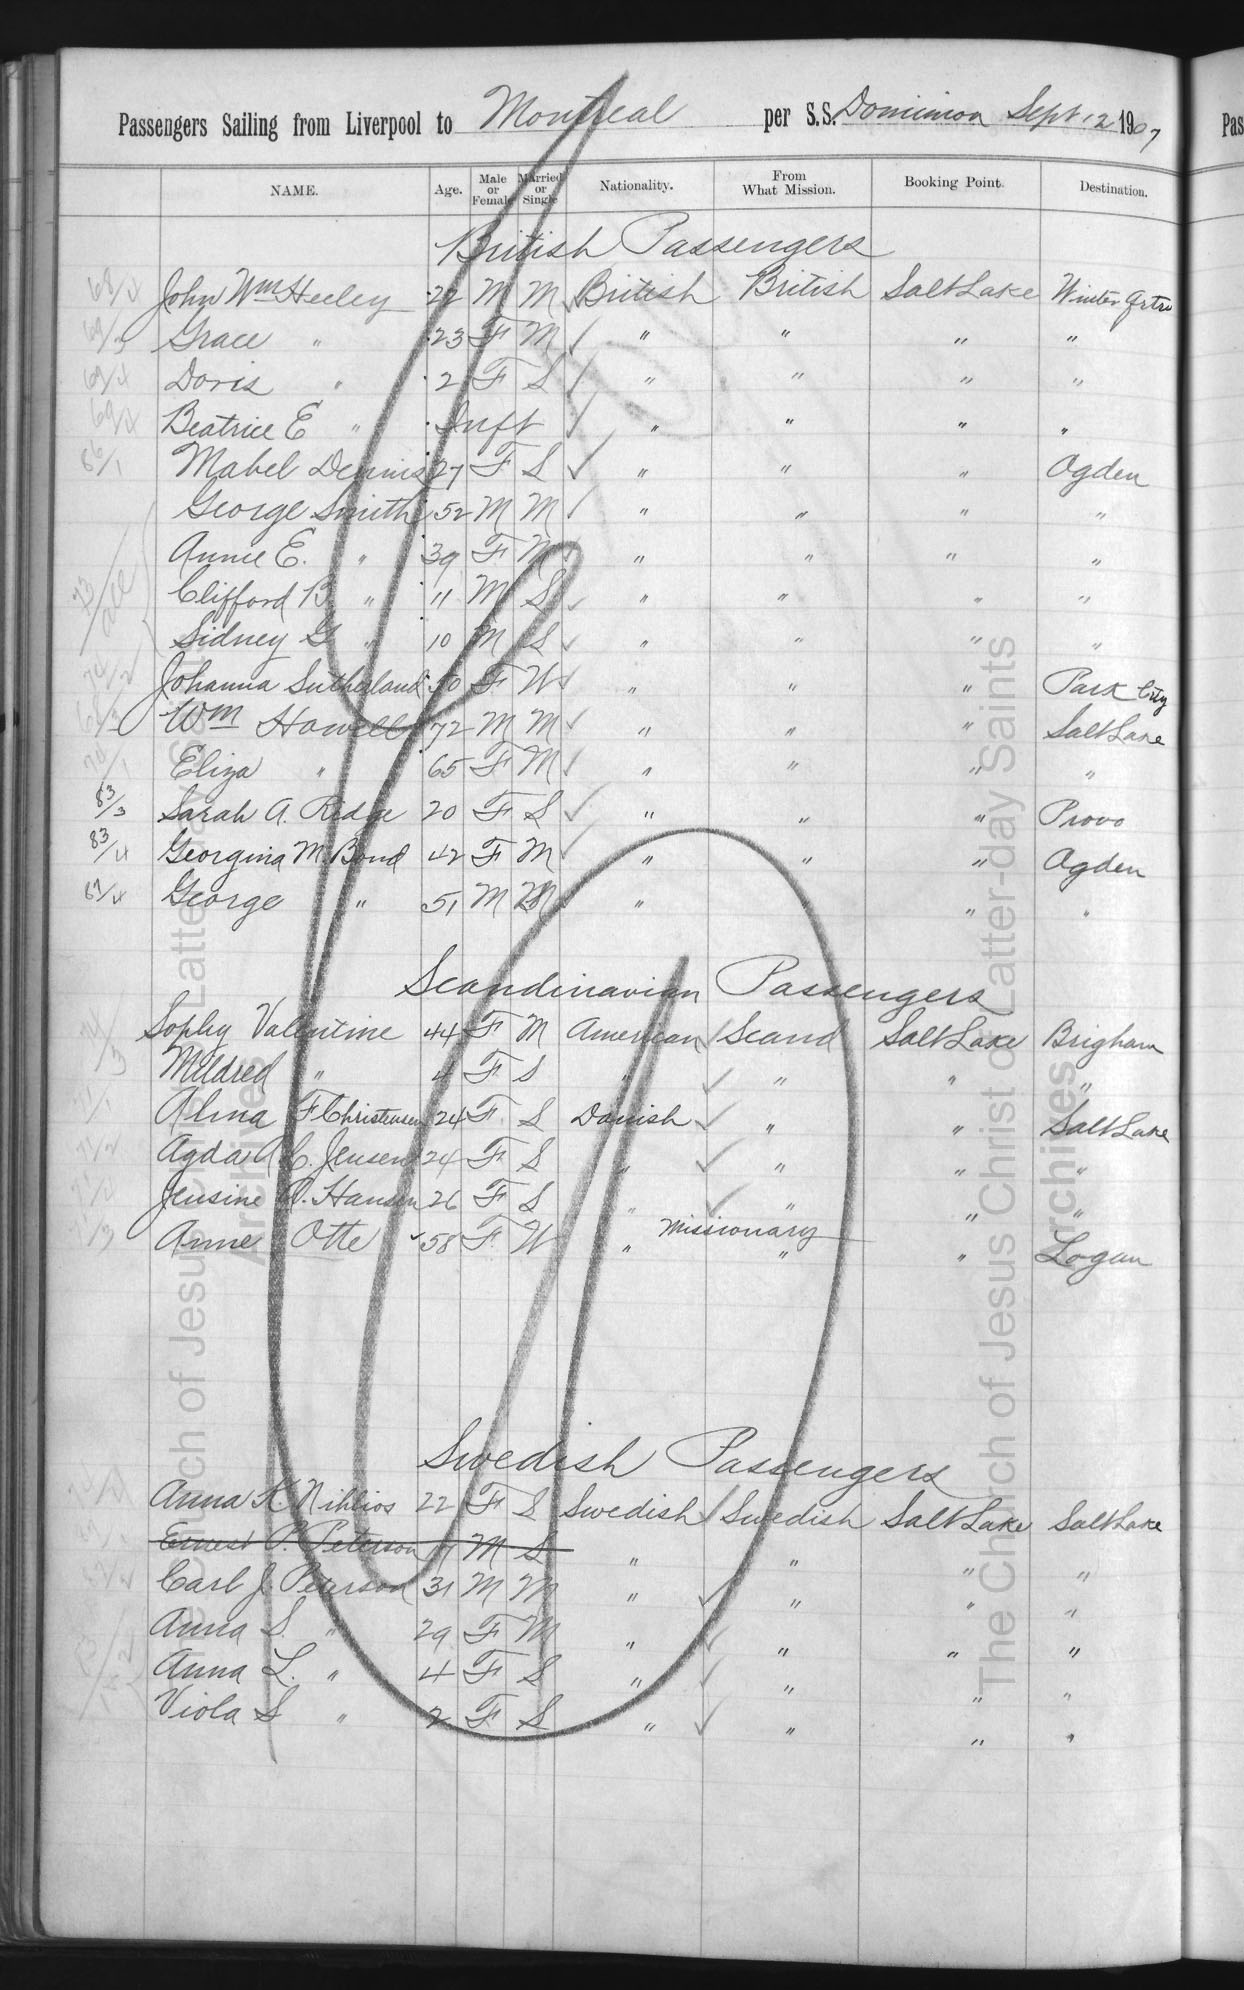 Passengers Sailing from Liverpool to Montreal per S.S. Dominion Sept 12 1907
NAME. Age. Male or Female Married or Single Nationality. From What Mission. Booking Point. Destination.
British Passengers
68/4 John Wm Heeley 22 M M British British Salt Lake Winter Qrtrs
69/3 Grace " 23 F M " " " "
69/4 Doris " 2 F S " " " "
69/4 Beatrice E " Inft " " " "
66/1 Mabel Dennis 27 F S " " " Ogden
George Smith 52 M M " " " "
Annie E. " 39 F M " " " "
73/all Clifford B " 11 M S " " " "
Sidney G " 10 M S " " " "
70/2 Johanna Sutherland 50 F W " " " Park City
Wm Howell 72 M M " " " Salt Lake
70/1 Eliza " 65 F M " " " "
83/3 Sarah A. Ridge 20 F S " " " Provo
83/4 Georgina M. Bond 42 F M " " " Ogden
67/4 George " 51 M M " " "
Scandinavian Passengers
Sophy Valentine 44 F M American Scand Salt Lake Brigham
Mildred " 4 F S " " " "
71/1 Alma F Christensen 24 F S Danish " " Salt Lake
71/2 Agda A C. Jensen 24 F S " " " "
Jensine P. Hansen 26 F S " " " "
71/3 Anne Otte 58 F W " Missionary " " Logan
Swedish Passengers
Anna K. Nihlios 22 F S Swedish Swedish Salt Lake Salt Lake
Ernest P. Peterson M S " " " "
Carl J. Peterson 31 M M " " " "
Anna S. " 29 F M " " " "
Anna L. " 4 F S " " " "
Viola S " 2 F S " " " "
The Church of Jesus Christ of Latter-day Saints
Archives
The Church of Jesus Christ of Latter-day Saints
Archives
Pas